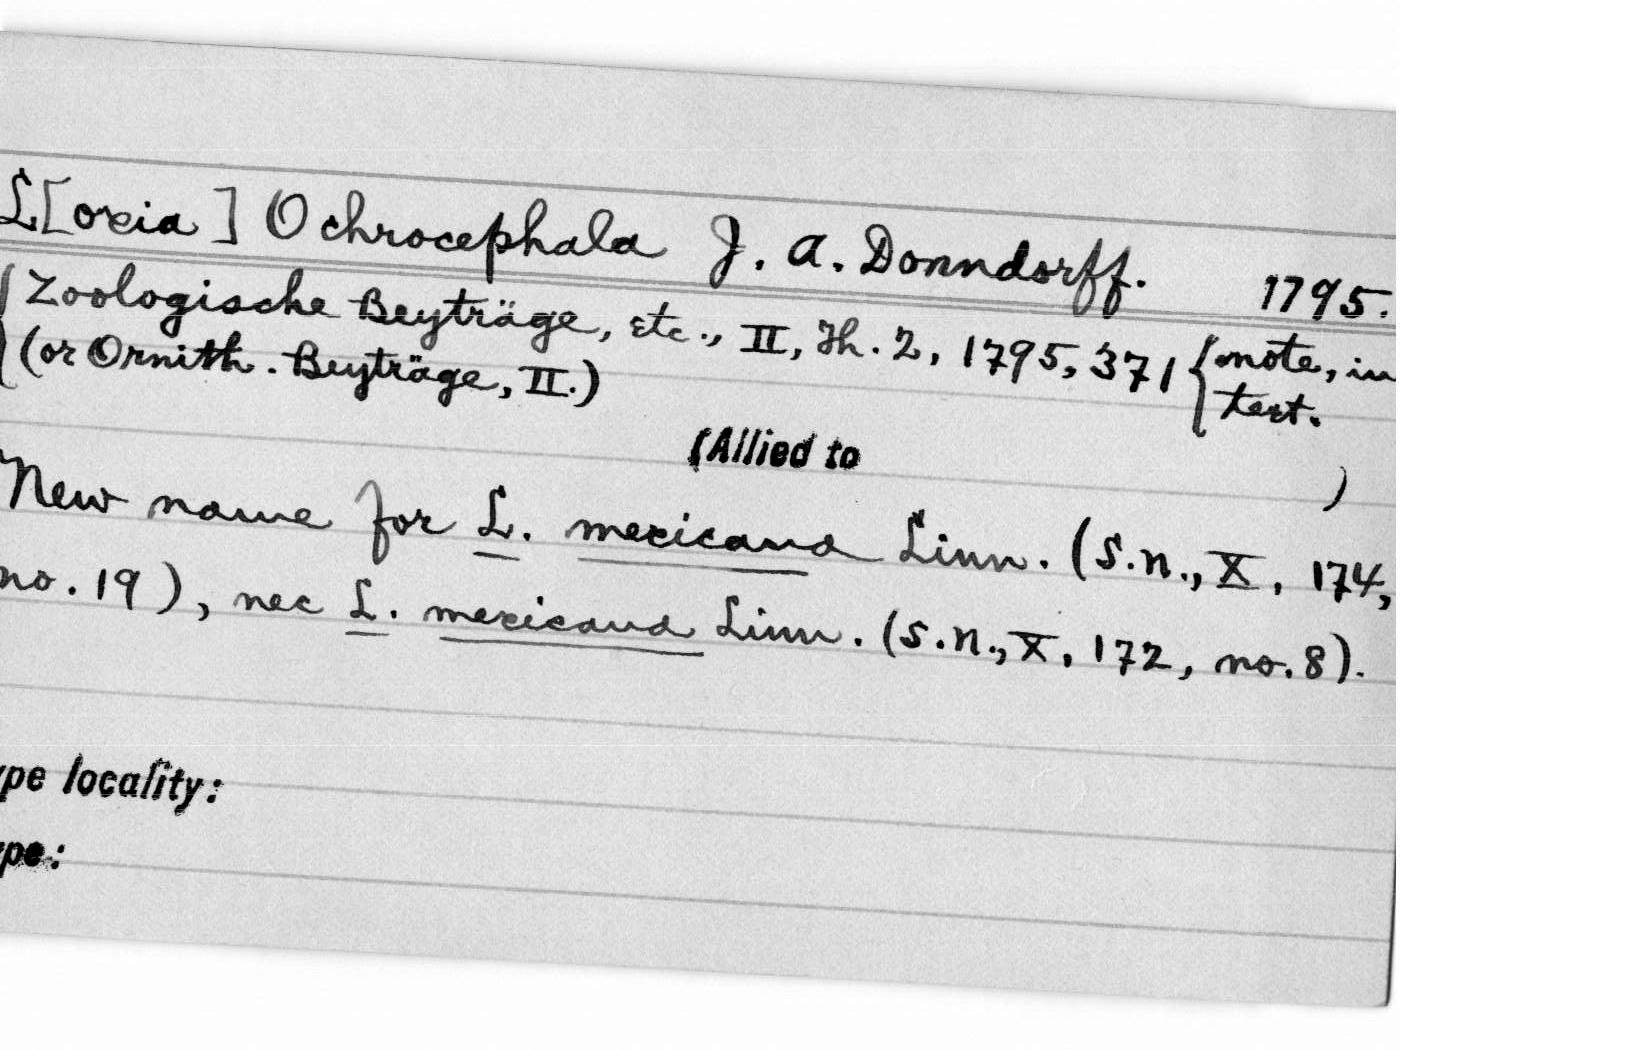 L[oxia] Ochrocephala J. A. Donndorff. 1795.
{Zoologische Beyträge, etc., II, Th. 2, 1795, 371 {note, in
(or Ornith. Beyträge, II.) text.
(Allied to )
New name for L. mexicana Linn. (S.N., X, 174,
no. 19), nec L. mexicana Linn. (S.N., X, 172, no. 8).
ype locality:
ype: